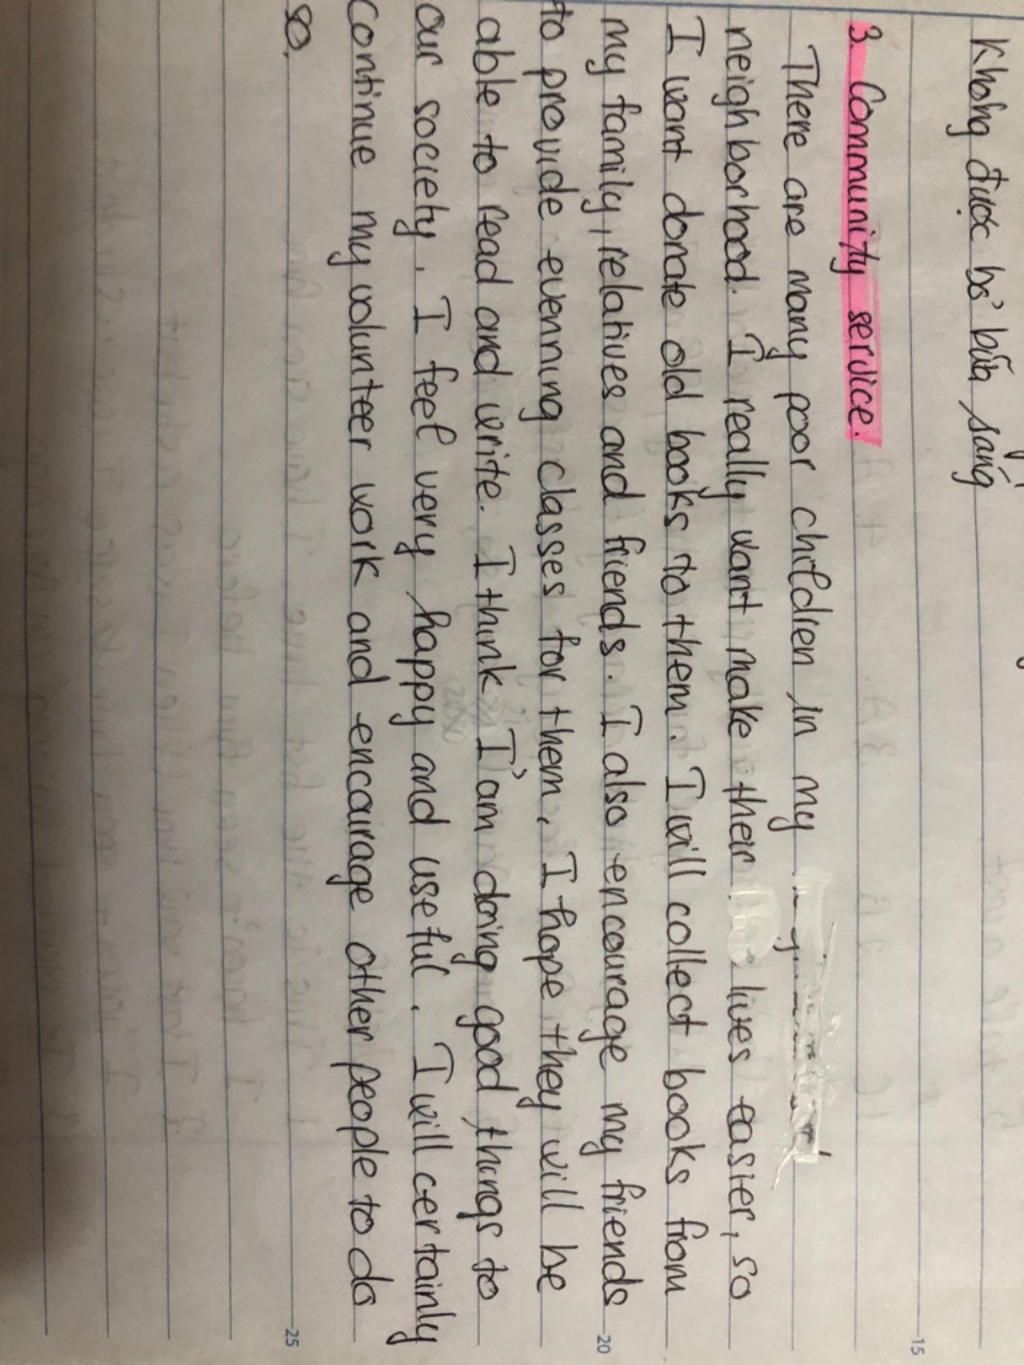 Không được bỏ bữa sáng
15
3. Community service.
There are many poor children in my
neighborhood. I really want make their lives easier, so
I want donate old books to them. I will collect books from
my family, relatives and friends. I also encourage my friends
20
to provide evenning classes for them. I hope they will be
able to read and write. I think I'am doing good things to
our society. I feel very happy and useful. I will certainly
continue my volunteer work and encairage other people to do
so.
25